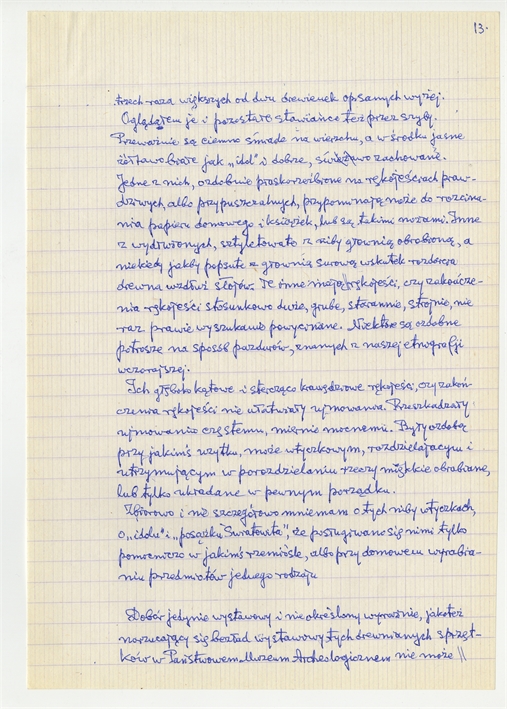 13.
trzech raza większych od dwu drewienek opisanych wyżej.
Oglądałem je i pozostałe stawiańce też przez szyby.
Przeważnie są ciemno śniade na wierzchu, a w środku jasne
żółtawo białe jak „idol” i dobrze, świeżawo zachowane.
Jedne z nich, ozdobnie płaskorzeźbione na rękojeściach praw-
dziwych, albo przypuszczalnych, przypominają noże do rozcina-
nia papieru domowego i książek, lub są takimi nożami. Inne
z wydrążonych, sztyletowate z niby głownią obrobioną, a
niekiedy jakby popsute z głownią surową wskutek rozdarcia
drewna wzdłuż słojów. Te inne mają rękojeści, czy zakończe-
nia rękojeści stosunkowo duże, grube, starannie, strojnie, nie
raz prawie wyszukanie powycinane. Niektóre są ozdobne
potrosze na sposób pazdurów, znanych z naszej etnografji
wczorajszej.
Ich głęboko kątowe i stercząco krawędziowe rękojeści, czy zakoń-
czenia rękojeści nie ułatwiały ujmowania. Przeszkadzały
ujmowaniu częstemu, miernie mocnemu. Były ozdobą
przy jakimś użytku, może wtyczkowym, rozdzielającym i
utrzymującym w porozdzielaniu rzeczy miękkie obrabiane,
lub tylko układane w pewnym porządku.
Zbiorowo i nie szczegółowo mniemam o tych niby wtyczkach,
o „idolu” i „posążku Światowita”, że posługiwano się nimi tylko
pomocniczo w jakimś rzemiośle, albo przy domowem wyrabia-
niu przedmiotów jednego rodzaju
Dobór jedynie wystawowy i nie określony wyraźnie, jakoteż
narzucający się bezład wystawowy tych drewnianych sprzęt-
ków w Państwowem Muzeum Archeologicznem nie może ||